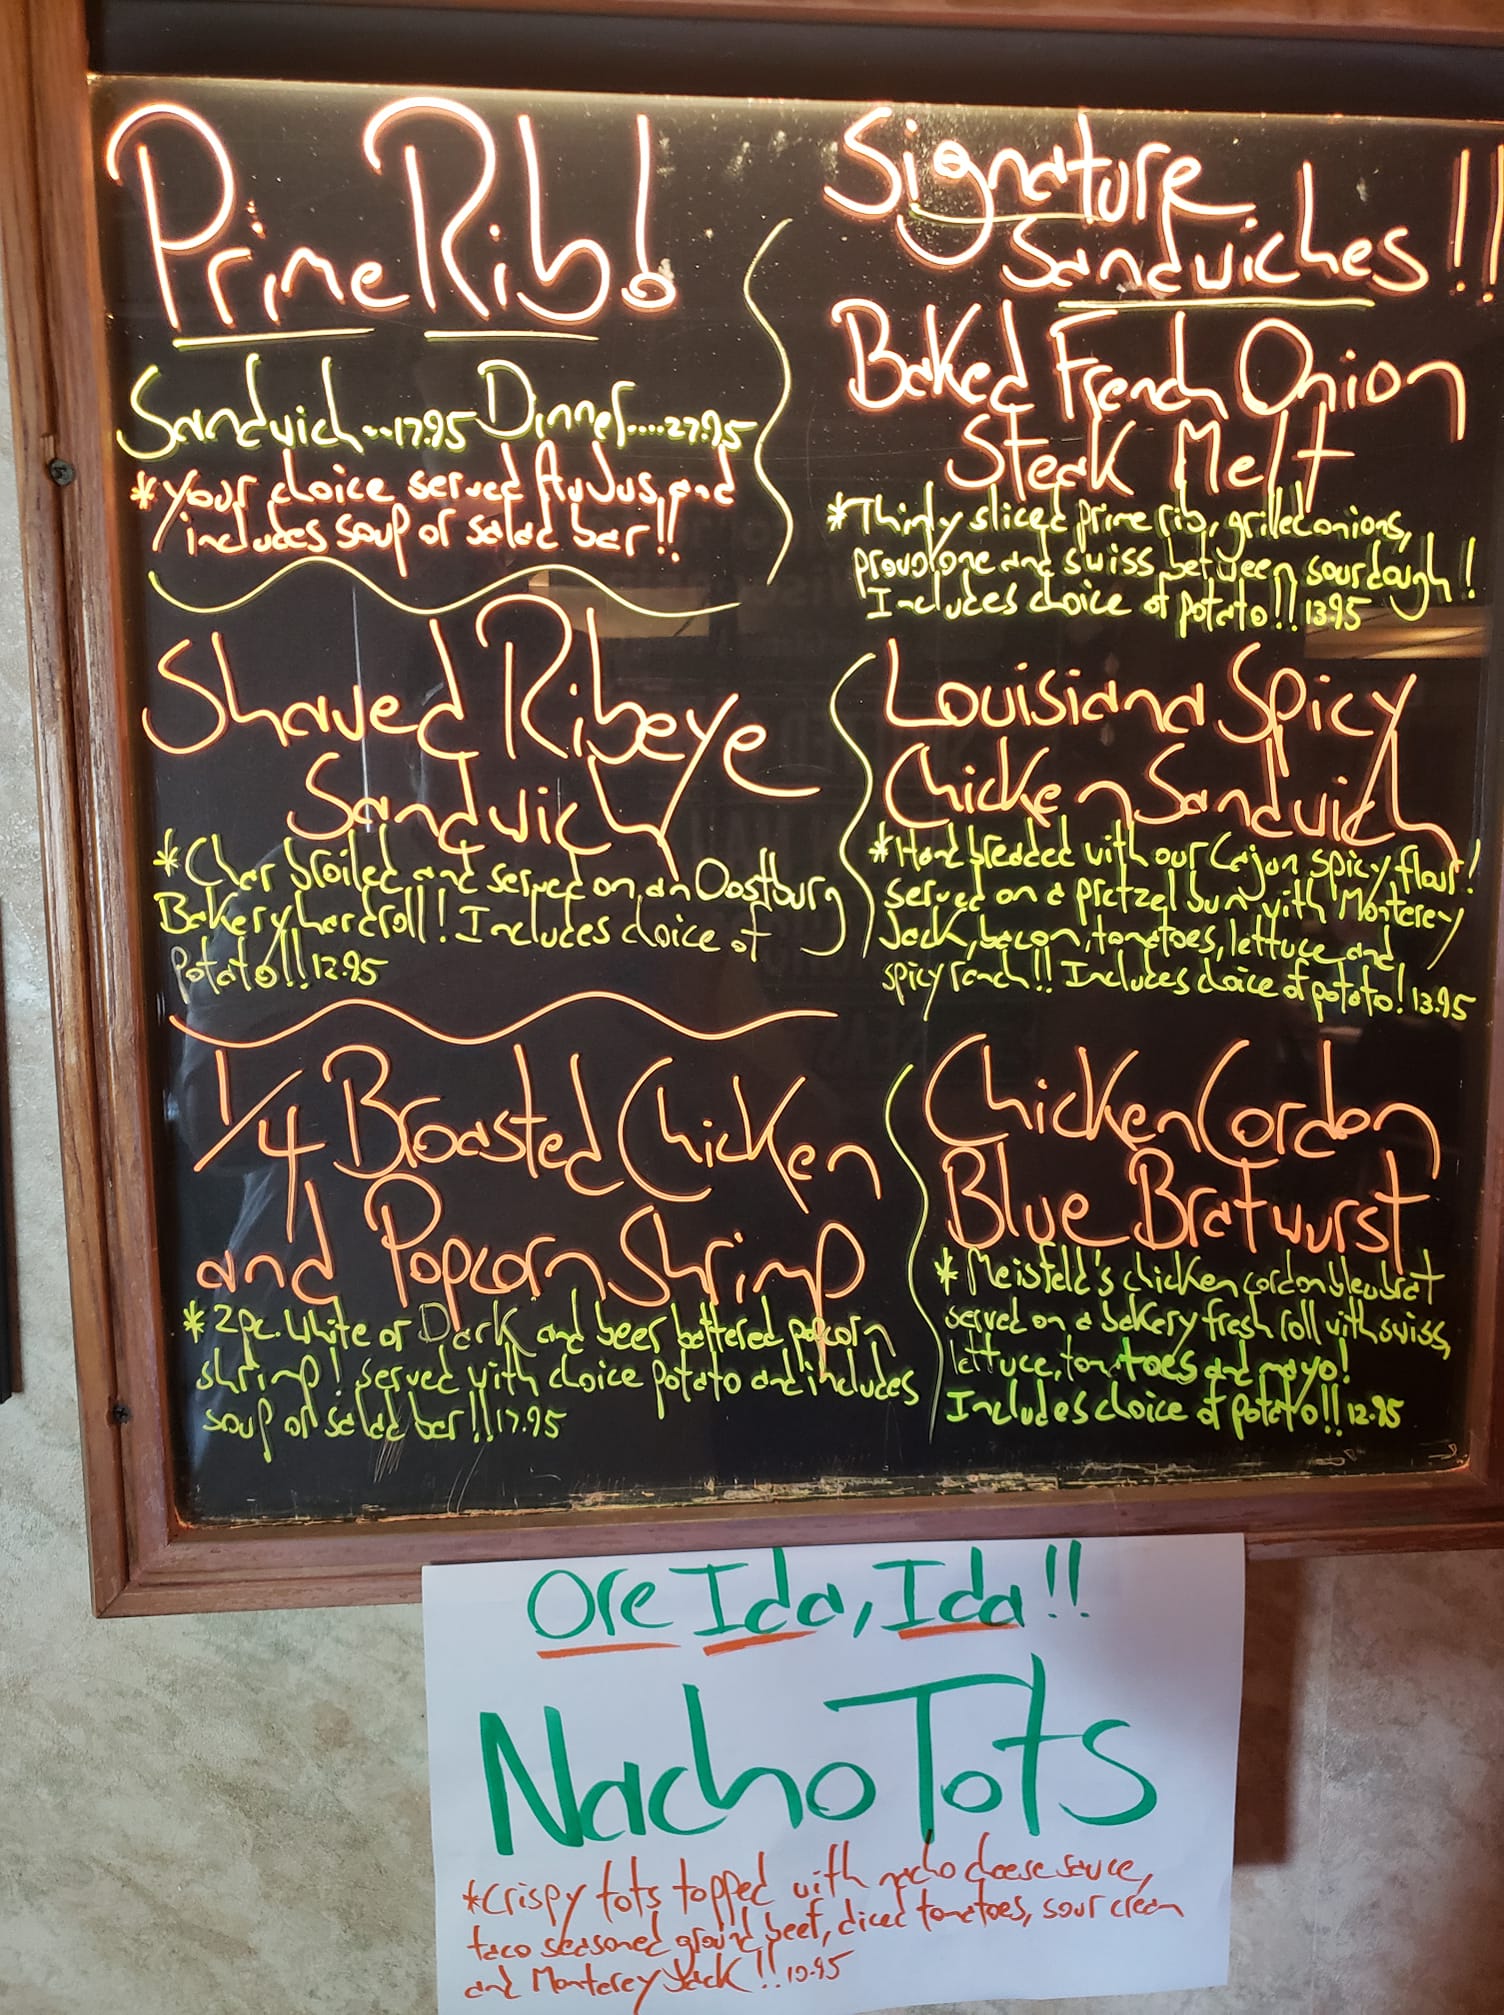 Prime Rib!
Sandwich...17.95 Dinner....27.95
*Your choice served AuJus, and
includes soup or salad bar!!
Shaved Ribeye
Sandwich
*Char broiled and served on an Oostburg
Bakery hard roll! Includes choice of
potato!! 12.95
1/4 Broasted Chicken
and Popcorn Shrimp
*2pc. White or Dark and beer battered popcorn
shrimp! Served with choice potato and includes
soup or salad bar!! 17.95
Signature
Sandwiches!!
Baked French Onion
Steak Melt
*Thinly sliced prime rib, grilled onions,
provolone and swiss between sourdough!
Includes choice of potato!! 13.95
Louisiana Spicy
Chicken Sandwich
*Hand breaded with our Cajun Spicy flour!
Served on a pretzel bun with Monterey
Jack, bacon, tomatoes, lettuce and
spicy ranch!! Includes choice of potato! 13.95
Chicken Cordon
Blue Bratwurst
*Meisfeld's chicken cordon bleu brat
served on a bakery fresh roll with swiss,
lettuce, tomatoes and mayo!
Includes choice of potato!! 12.95
Ore Ida, Ida!!
Nacho Tots
*Crispy tots topped with nacho cheese sauce,
taco seasoned ground beef, diced tomatoes, sour cream
and Monterey Jack!! 10.95